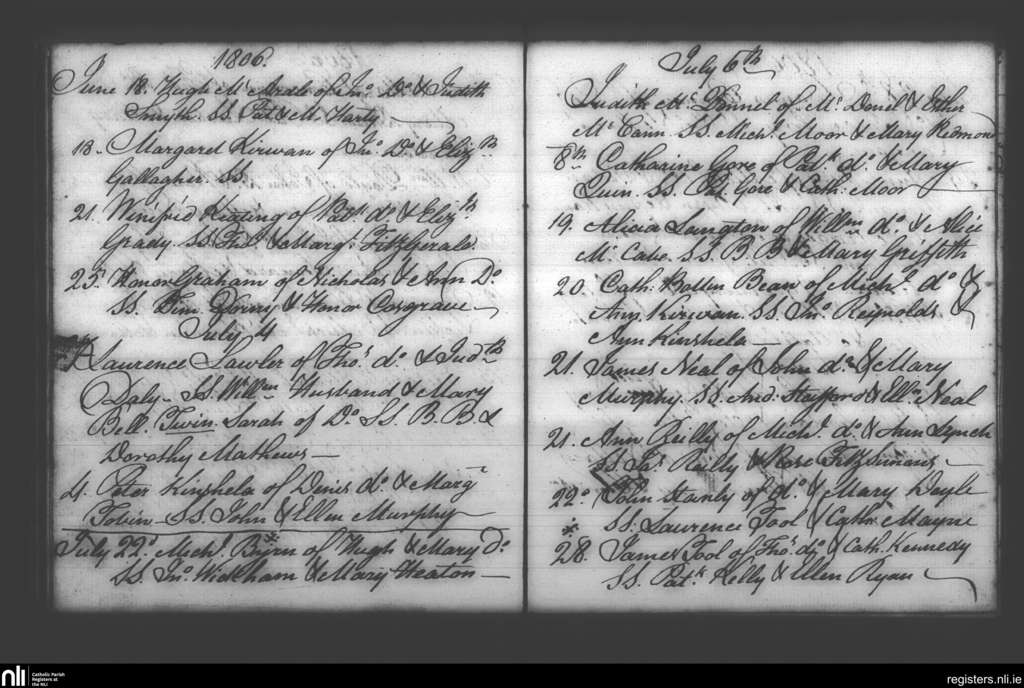 1806.
June 18. Hugh Mc Ardle of Jno. Do. & Judith
Smyth. SS. Pat & M. Harty
18. Margaret Kirwan of Jno. Do. & Elizth
Gallagher. SS.
21. Winifrid Keating of Patk. do. & Elizth
Grady. SS. & Margt. Fitzgerald.
25. Honor Graham of Nicholas & Ann Do.
SS. Tim. & Honor Cosgrave
July 4
Laurence Lawler of Thos. do. & Judth
Daly - SS. Willm Husband & Mary
Bell. Twin. Sarah of Do. SS. B. B. &
Dorothy Mathews
4. Peter Kinshela of Denis do. & Marg
Tobin - SS. John & Ellen Murphy
July 22d. Michl. Byrn of Hugh & Mary Do.
SS. Jno. Wickham & Mary Heaton
July 6th
Judith Mc Donnel of Mc. Donel & Esther
Mc Cann. SS. Michl. Moor & Mary Redmond
8th Catharine Gore of Patk. do. & Mary
Quin. SS. Pat. Gore & Cath: Moor
19. Alicia Langton of Willm do. & Alice
Mc Cabe. SS. B. B. & Mary Griffith
20. Cath: Bean of Michl. do. &
Ann Kirwan. SS. Jno. Reynolds &
Ann Kinshela
21. James Neal of John do. & Mary
Murphy. SS. And. Stafford & Ell. Neal
21. Ann Reilly of Michl. do. & Ann Lynch
SS. Jas. Reilly & Rose FitzSimons
22d. John Stanly of do. & Mary Doyle
* SS. Laurence Tool & Cath: Mayne
28. James Tool of Thos. do. & Cath. Kennedy
SS. Patk. Kelly & Ellen Ryan
nli
Catholic Parish
Registers at
the NLI
registers.nli.ie